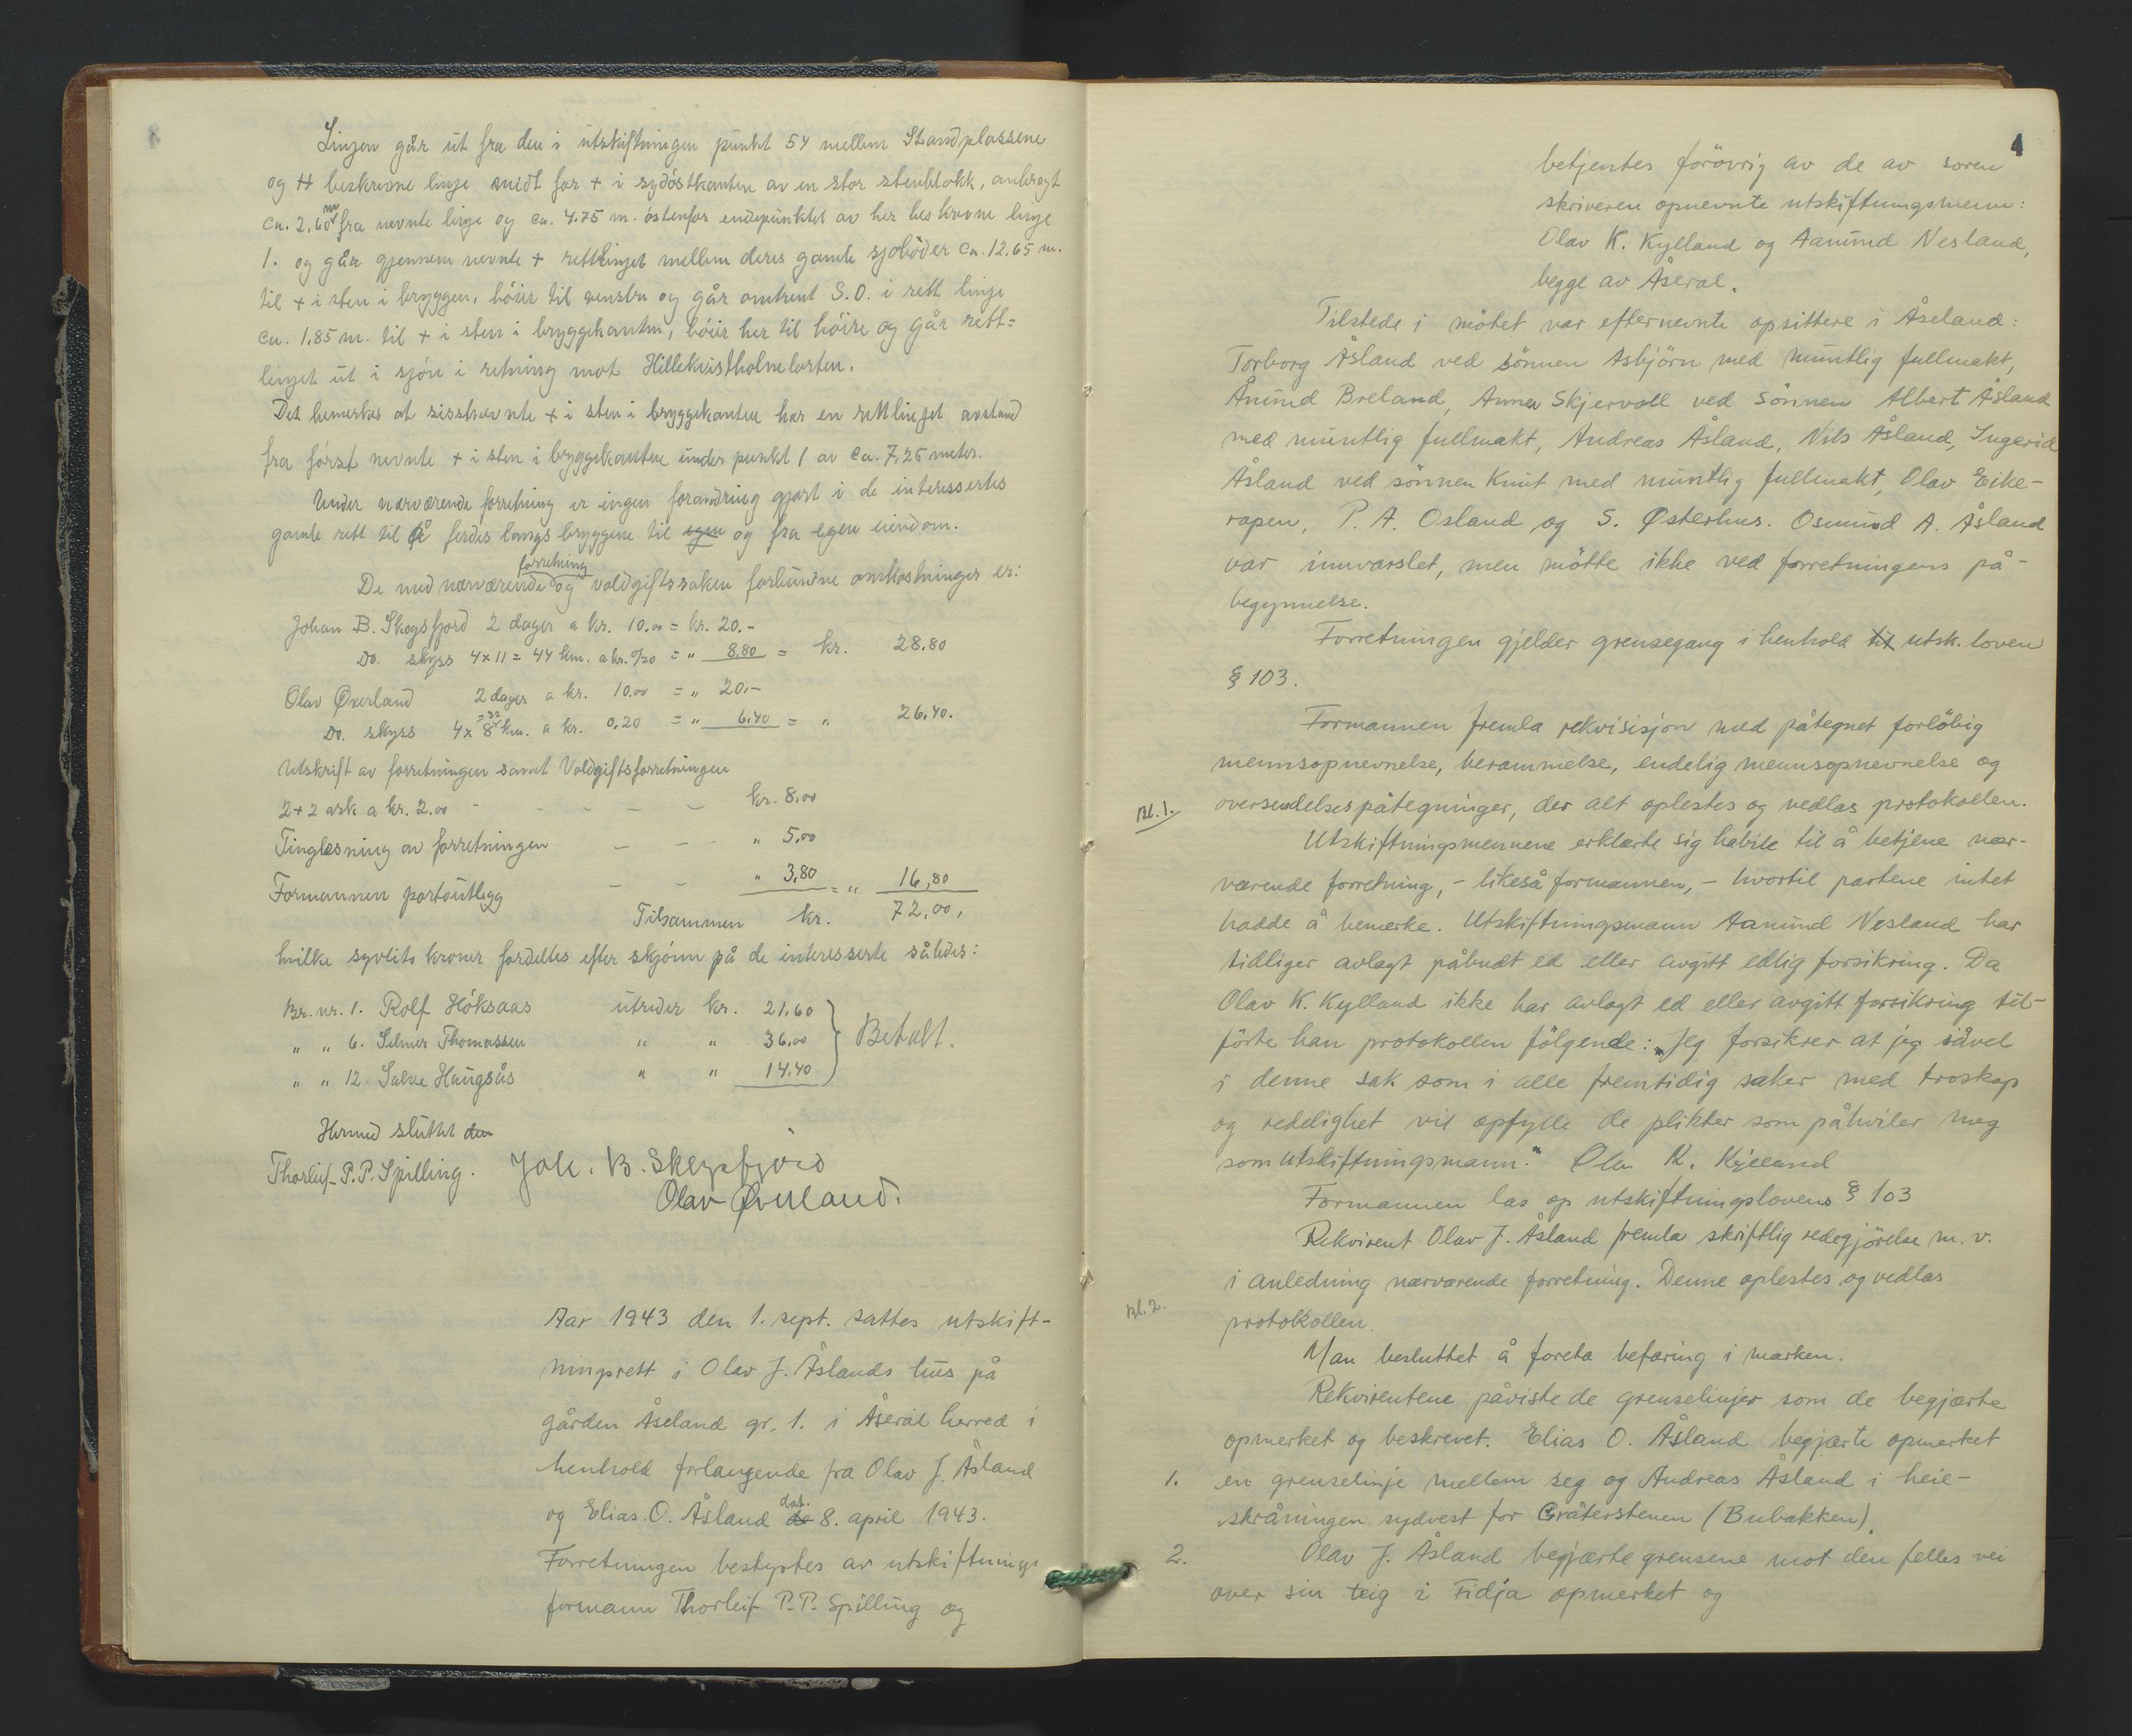 Linjen går ut fra den i utskiftningen punkt 54 mellem Standplassene
og H beskrevne linje midt for + i sydöstkanten av en stor stenblokk, anbragt
ca. 2,60 m fra nevnte linje og ca. 4.75 m. östenfor endepunktet av her beskrevne linje
1. og går gjennem nevnte + rettlinjet mellem deres gamle sjöboder ca. 12,65 m.
til + i sten i bryggen, böier til venstre og går omtrent S.O. i rett linje
ca. 1,85 m. til + i sten i bryggekanten, böier her til höire og går rett=
linjet ut i sjöen i retning mot Hillekvistholmelasten.
Det bemerkes at sisstnevnte + i sten i bryggekanten har en rettlinjet avstand
fra först nevnte + i sten i bryggekanten under punkt 1 av ca. 7,25 meter.
Under nærværende forretning er ingen forandring gjort i de interessertes
gamle rett til å ferdes langs bryggene til egen og fra egen eiendom.
forretning
De med nærværende og voldgiftssaken forbundne omkostninger er:
Johan B. Skogsfjord 2 dager a kr. 10.00 = kr. 20.-
Do. skyss 4x11 = 44 km. a kr. 0/20 = " 8.80 = kr. 28.80
Olav Øverland 2 dager a kr. 10.00 = " 20.-
Do. skyss 4 x 8 = 32 km. a kr. 0,20 = " 6,40 = " 26,40.
Utskrift av forretningen samt Voldgiftsforretningen
2+2 ark a kr. 2.00 - - - - - kr. 8,00
Tinglesning av forretningen - - - " 5,00
Formannen portoutlegg - - " 3,80 = " 16,80
Tilsammen kr. 72,00,
hvilke syvtito kroner fordeltes efter skjönn på de interesserte således:
Br. nr. 1. Rolf Höksaas utreder kr. 21,60
" " 6. Selmer Thomassen " " 36,00 Betalt.
" " 12. Salve Haugsås " " 14,40
Hermed sluttet den
Thorleif P.P. Spilling. Joh. B. Skogsfjord
Olav Øverland.
Aar 1943 den 1. sept. sattes utskift-
ningsrett i Olav J. Åslands hus på
gården Åseland gr. 1. i Åseral herred i
henhold forlangende fra Olav J. Åsland
og Elias O. Åsland de dat. 8. april 1943.
Forretningen bestyrtes av utskiftnings
formann Thorleif P.P. Spilling og
4
betjentes forövrig av de av soren
skriveren opnevnte utskiftningsmenn:
Olav K. Kylland og Aanund Nesland,
begge av Åseral.
Tilstede i mötet var efternevnte opsittere i Åseland:
Torborg Åsland ved sönnen Asbjörn med muntlig fullmakt,
Ånund Breland, Anna Skjervoll ved sönnen Albert Åsland
med muntlig fullmakt, Andreas Åsland, Nils Åsland, Ingerid
Åsland ved sönnen Knut med muntlig fullmakt, Olav Eike-
rapen, P. A. Osland og S. Østerhus. Osmund A. Åsland
var innvarslet, men mötte ikke ved forretningens på-
begynnelse.
Forretningen gjelder grensegang i henhold til utsk. loven
§ 103.
Formannen fremla rekvisisjon med påtegnet forlöbig
mennsopnevnelse, berammelse, endelig mennsopnevnelse og
Bl. 1. oversendelsespåtegninger, der alt oplestes og vedlas protokollen.
Utskiftningsmennene erklærte sig habile til å betjene nær-
værende forretning, - likeså formannen, - hvortil partene intet
hadde å bemerke. Utskiftningsmann Aanund Nesland har
tidliger avlagt påbudt ed eller avgitt edlig forsikring. Da
Olav K. Kylland ikke har avlagt ed eller avgitt forsikring til-
förte han protokollen fölgende: "Jeg forsikrer at jeg såvel
i denne sak som i alle fremtidig saker med troskap
og redelighet vil opfylle de plikter som påhviler meg
som utskiftningsmann." Olav K. Kylland
Formannen las op utskiftningslovens § 103
Rekvirent Olav J. Åsland fremla skriftlig redegjörelse m. v.
i anledning nærværende forretning. Denne oplestes og vedlas
Bl. 2. protokollen.
Man besluttet å foreta befaring i marken.
Rekvirentene påviste de grenselinjer som de begjærte
opmerket og beskrevet. Elias O. Åsland begjærte opmerket
1. en grenselinje mellem seg og Andreas Åsland i heie-
skråningen sydvest for Gråterstenen (Bubakken).
2. Olav J. Åsland begjærte grensene mot den felles vei
over sin teig i Fidja opmerket og